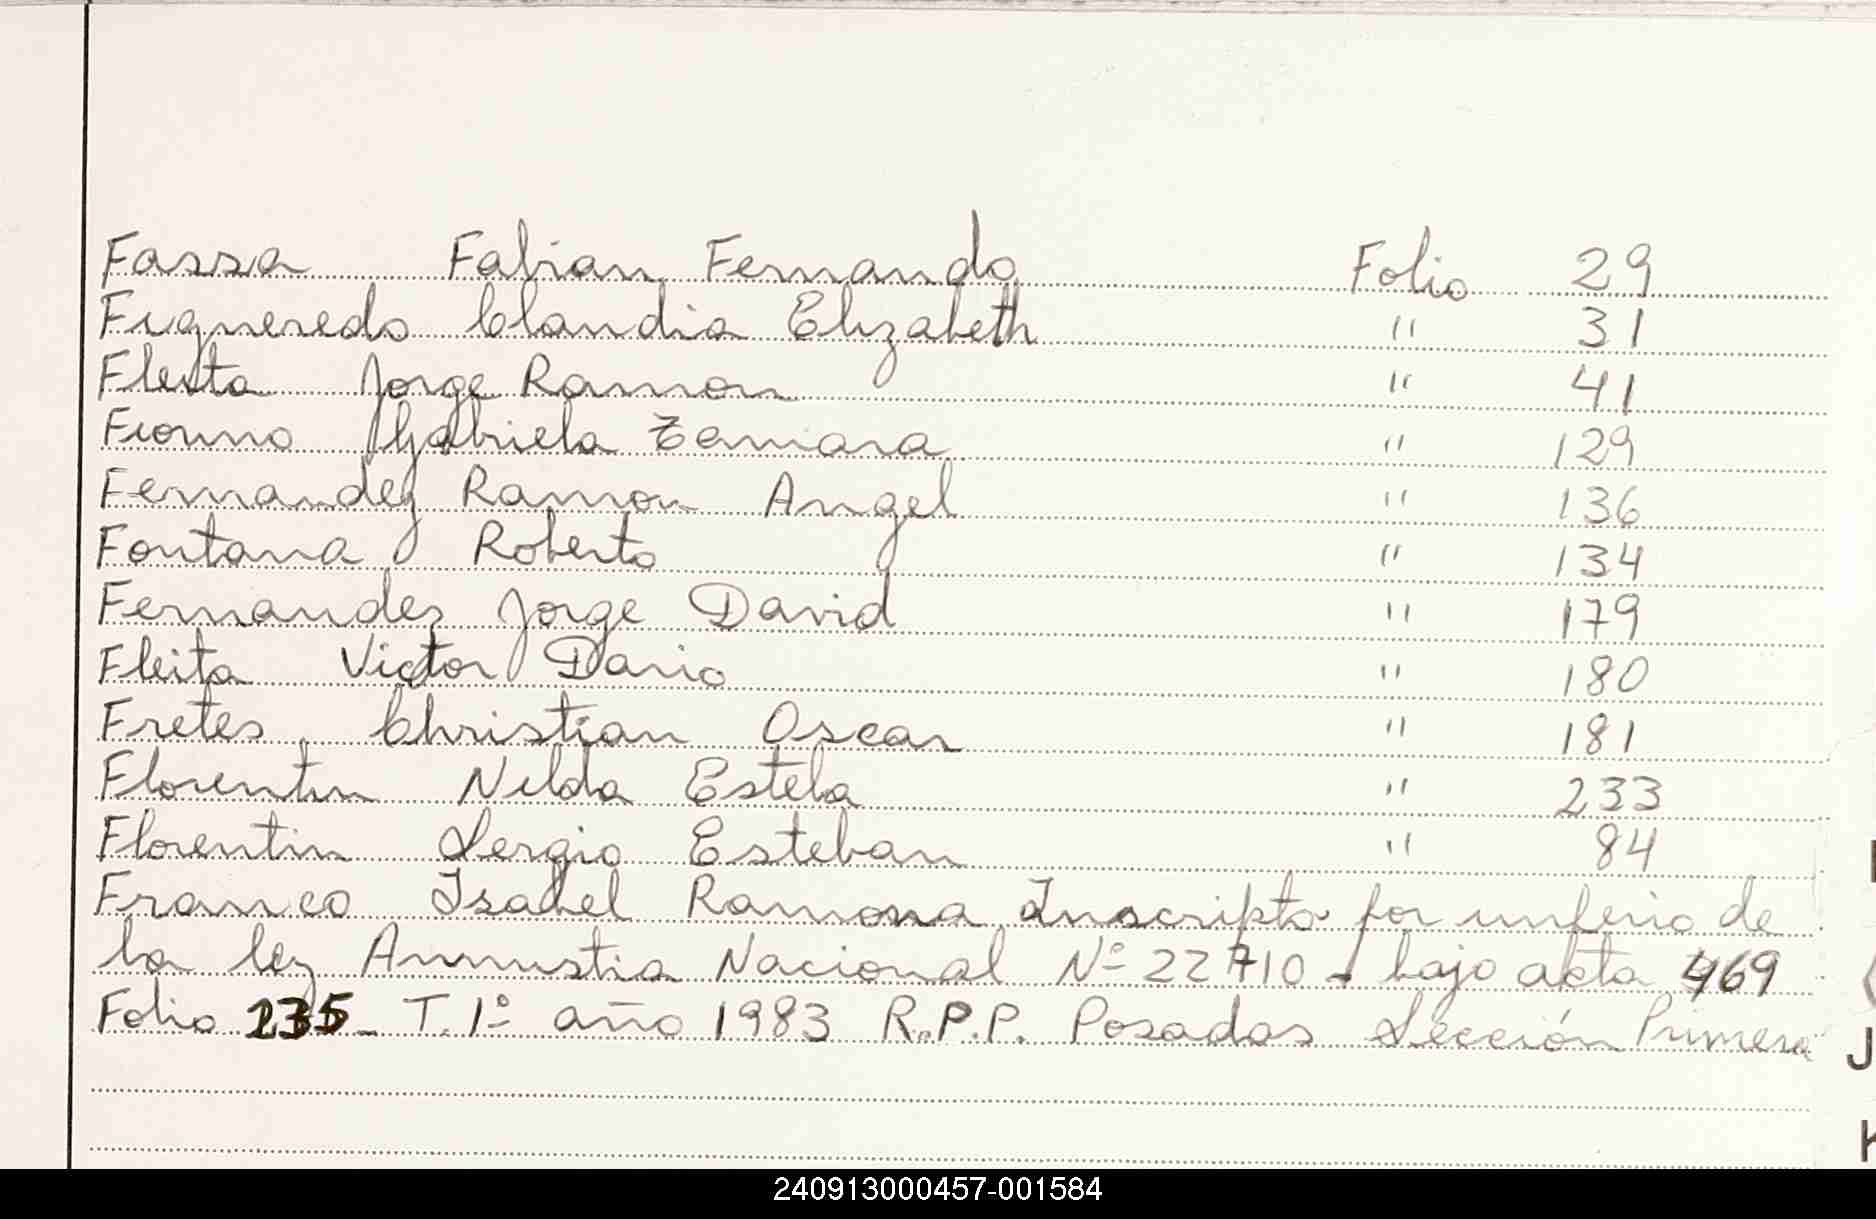 Fassa Fabian Fernando Folio 29
Figueredo Claudia Elizabeth " 31
Fleita Jorge Ramon " 41
Gabriela Tamara " 129
Fernandez Ramon Angel " 136
Fontana Roberto " 134
Fernandez Jorge David " 179
Fleita Victor Dario " 180
Fretes Christian Oscar " 181
Florentin Nilda Estela " 233
Florentin Sergio Esteban " 84
Franco Isabel Ramona Inscripta por imperio de
la ley Amnistia Nacional Nº 22710 - bajo acta 469
Folio 235 - T. 1º año 1983 R.P.P. Posadas Sección Primera
J
K
240913000457-001584